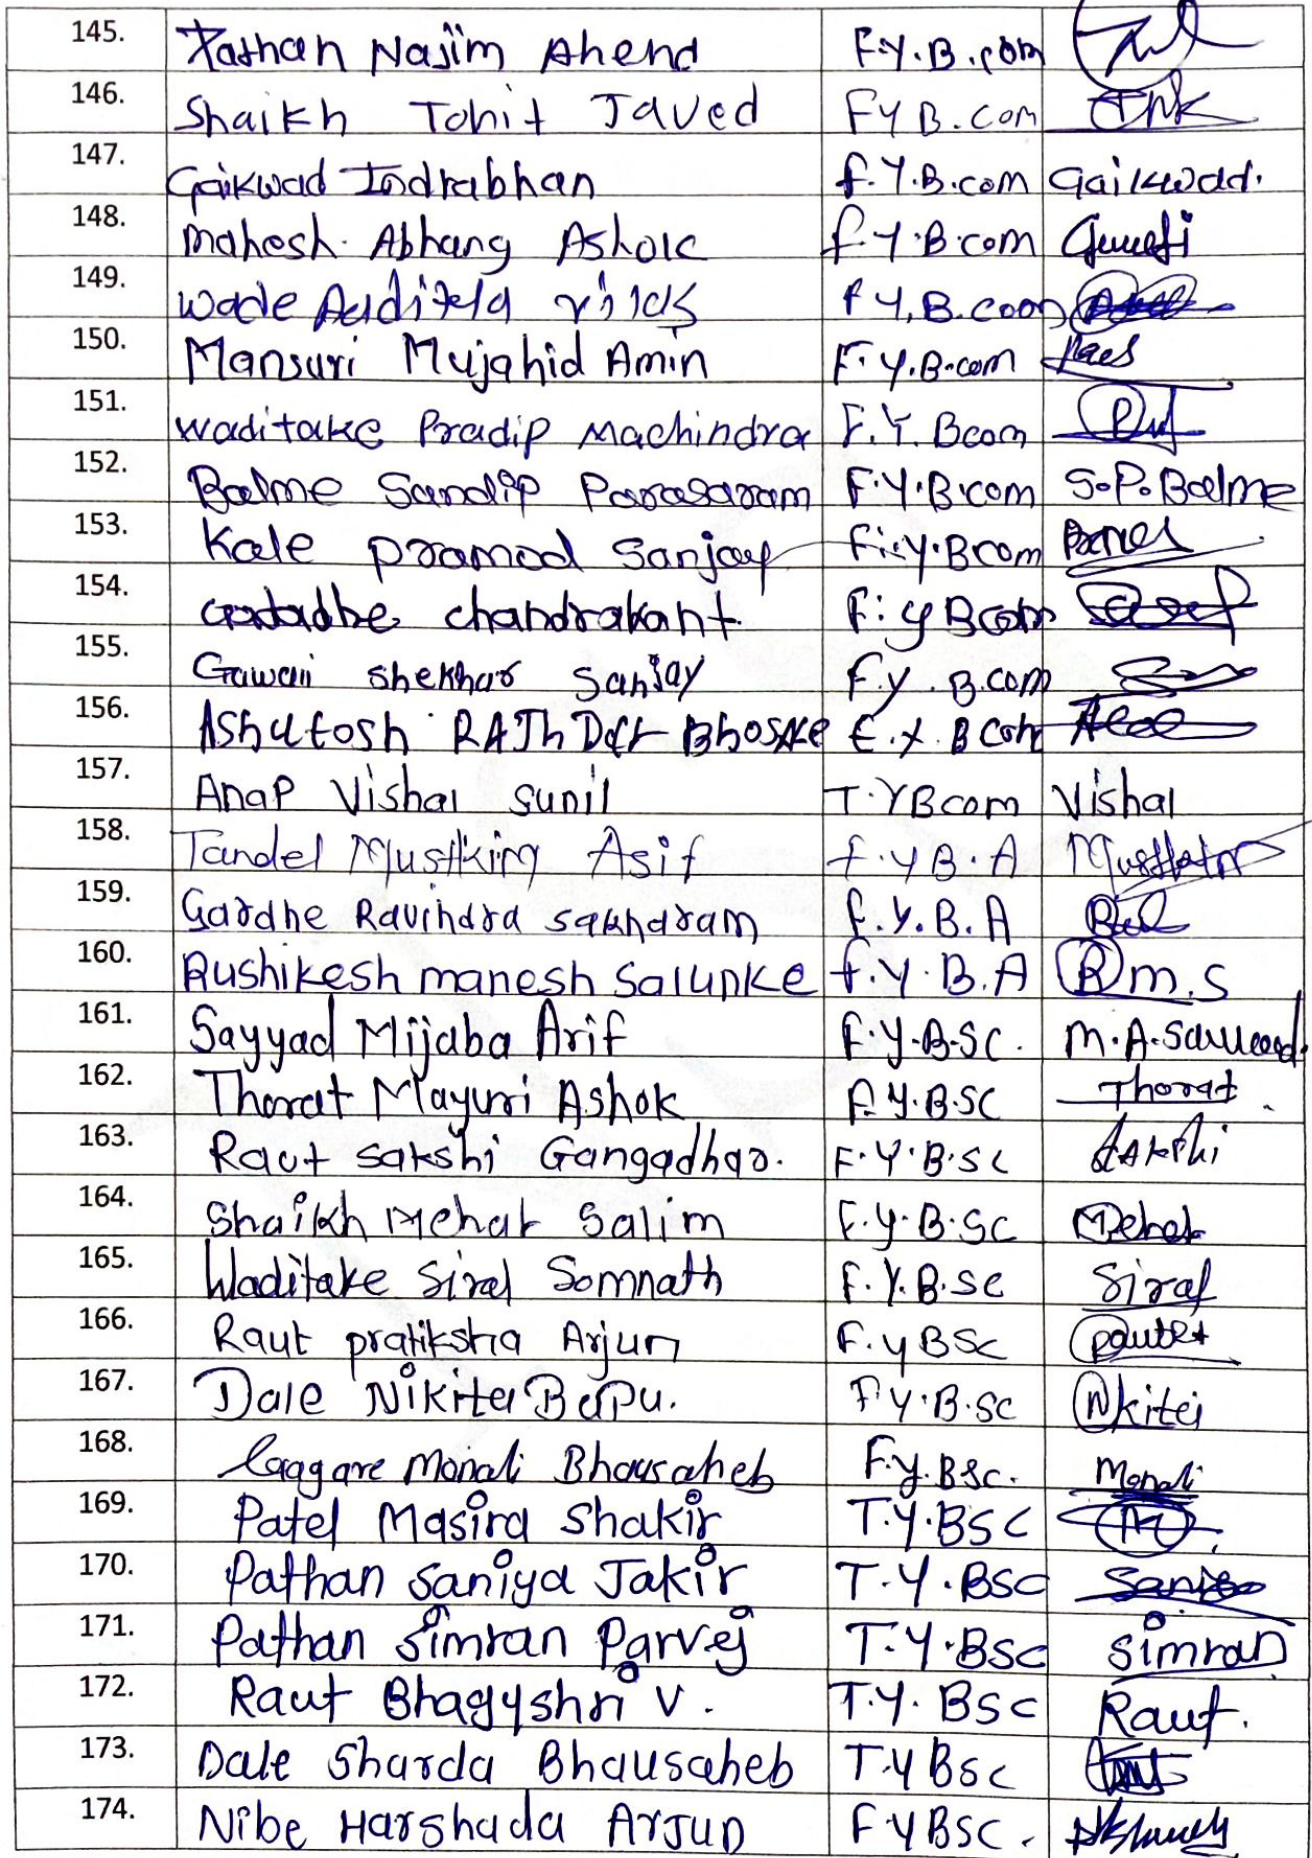 145. Pathan Najim Ahend F.Y.B.com
146. Shaikh Tohit Javed FYB.com
147. Gaikwad Indrabhan f.Y.B.com Gaikwad.
148. Mahesh Abhang Ashok f.Y.B.com
149. Wade F.Y.B.com
150. Mansuri Mujahid Amin F.Y.B.com
151. Waditake Pradip Machindra F.Y.Bcom
152. Balme Sandip Parasaram F.Y.B.com S.P.Balme
153. Kale pramod Sanjay F.Y.Bcom
154. chandrakant F.yBcom
155. Gawaii shekhar Sanjay F.y.B.com
156. Ashutosh Bhosale F.Y.BCom
157. Anap Vishal sunil T.YBcom Vishal
158. Tandel Mustkim Asif f.yB.A
159. Gardhe Ravindra sakharam f.y.B.A
160. Rushikesh manesh Salunke f.y.B.A R m.s
161. Sayyad Mijaba Arif F.Y.B.SC. M.A.Sayyad.
162. Thorat Mayuri Ashok F.Y.B.SC Thorat
163. Raut sakshi Gangadhar. F.Y.B.SC sakshi
164. Shaikh Mehak Salim F.y.B.Sc Mehak
165. Waditake Siral Somnath F.Y.B.Sc Siral
166. Raut pratiksha Arjun F.yBSc
167. Dale Nikita Bapu. F.Y.B.SC Nkita
168. Gaagare Monali Bhausaheb F.y.BSc. Monali
169. Patel Masira Shakir T.Y.BSC
170. Pathan Saniya Jakir T.Y.BSC Saniya
171. Pathan Simran Parvej T.Y.BSC Simran
172. Raut Bhagyshri V. T.Y.BSC Raut.
173. Dale Sharda Bhausaheb T.YBSC
174. Nibe Harshada Arjun FYBSC.